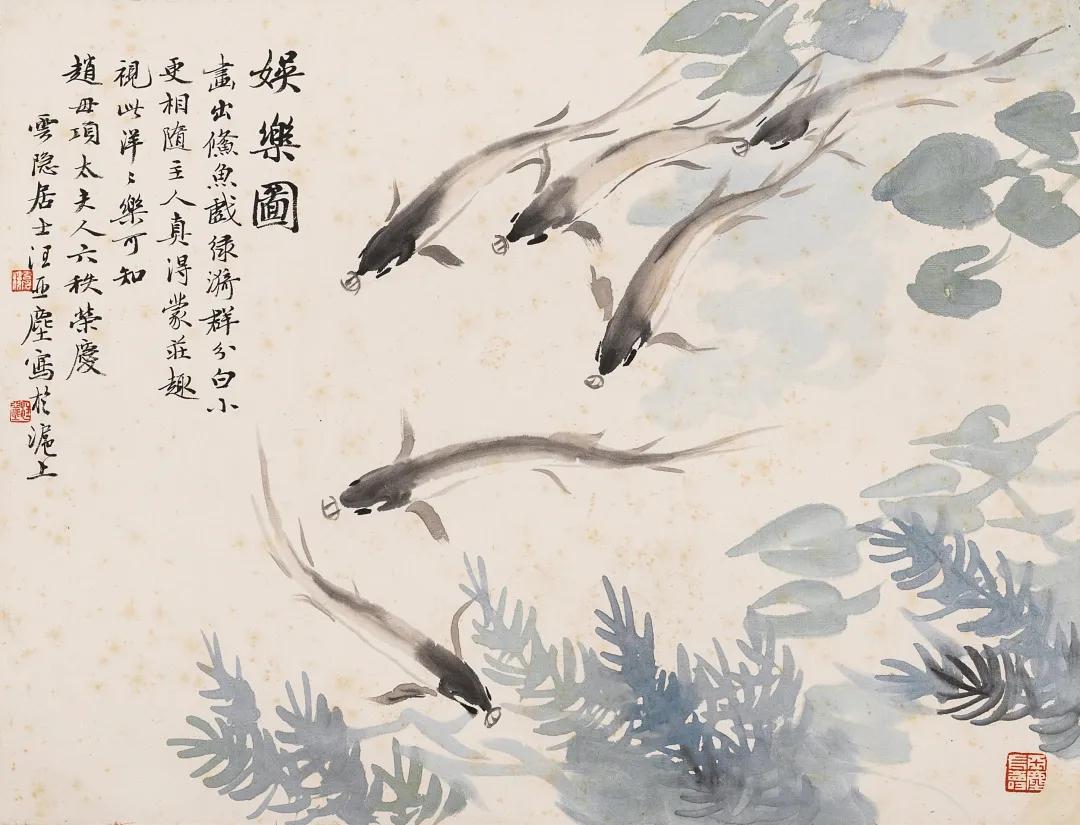 娛樂圖
畫出鯈魚戲綠漪群分白小
更相隨主人真得蒙莊趣
視此洋〻樂可知
趙母項太夫人六秩榮慶
雲隐居士汪亞塵寫於滬上
亞塵長壽